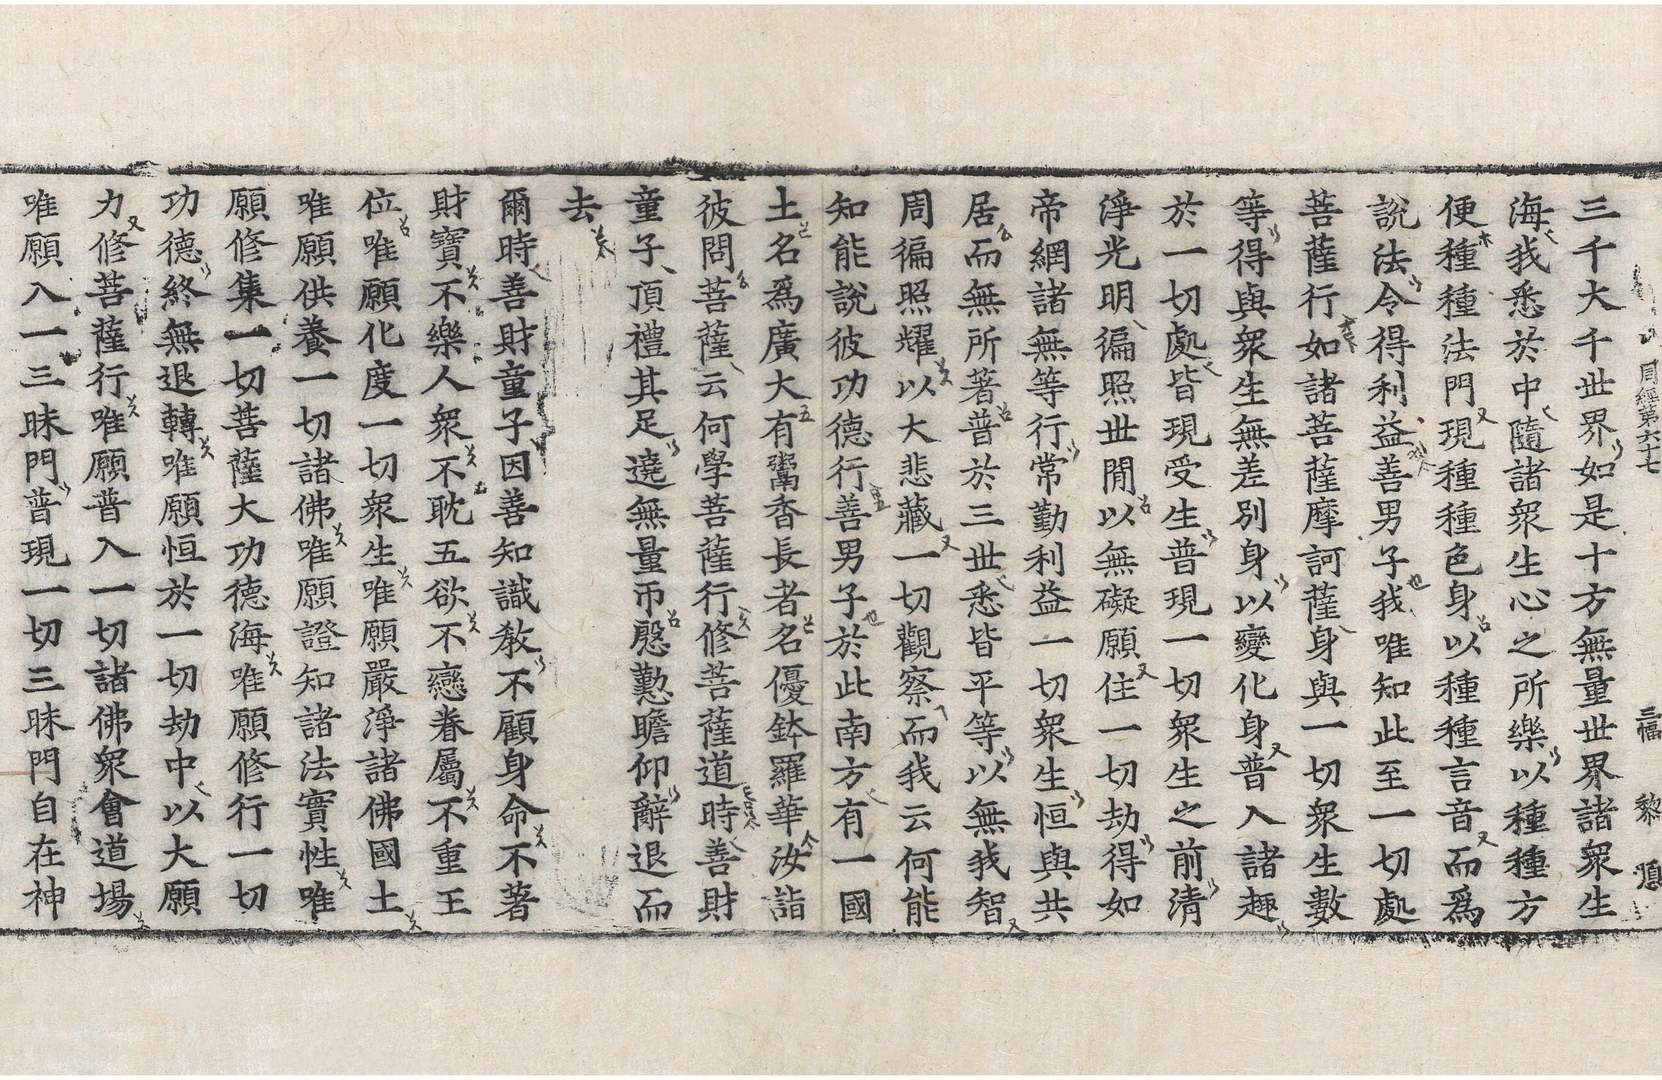 周經第六十七　三幅　黎　順
三千大千世界如是十方無量世界諸衆生
海我悉於中隨諸衆生心之所樂以種種方
便種種法門現種種色身以種種言音而爲
說法令得利益善男子我唯知此至一切處
菩薩行如諸菩薩摩訶薩身與一切衆生數
等得與衆生無差別身以變化身普入諸趣
於一切處皆現受生普現一切衆生之前清
淨光明徧照世閒以無礙願住一切劫得如
帝網諸無等行常勤利益一切衆生恒與共
居而無所著普於三世悉皆平等以無我智
周徧照耀以大悲藏一切觀察而我云何能
知能說彼功德行善男子於此南方有一國
土名爲廣大有鬻香長者名優鉢羅華汝詣
彼問菩薩云何學菩薩行修菩薩道時善財
童子頂禮其足遶無量帀慇懃瞻仰辭退而
去
爾時善財童子因善知識教不顧身命不著
財寶不樂人衆不耽五欲不戀眷屬不重王
位唯願化度一切衆生唯願嚴淨諸佛國土
唯願供養一切諸佛唯願證知諸法實性唯
願修集一切菩薩大功德海唯願修行一切
功德終無退轉唯願恒於一切劫中以大願
力修菩薩行唯願普入一切諸佛衆會道場
唯願入一三昧門普現一切三昧門自在神